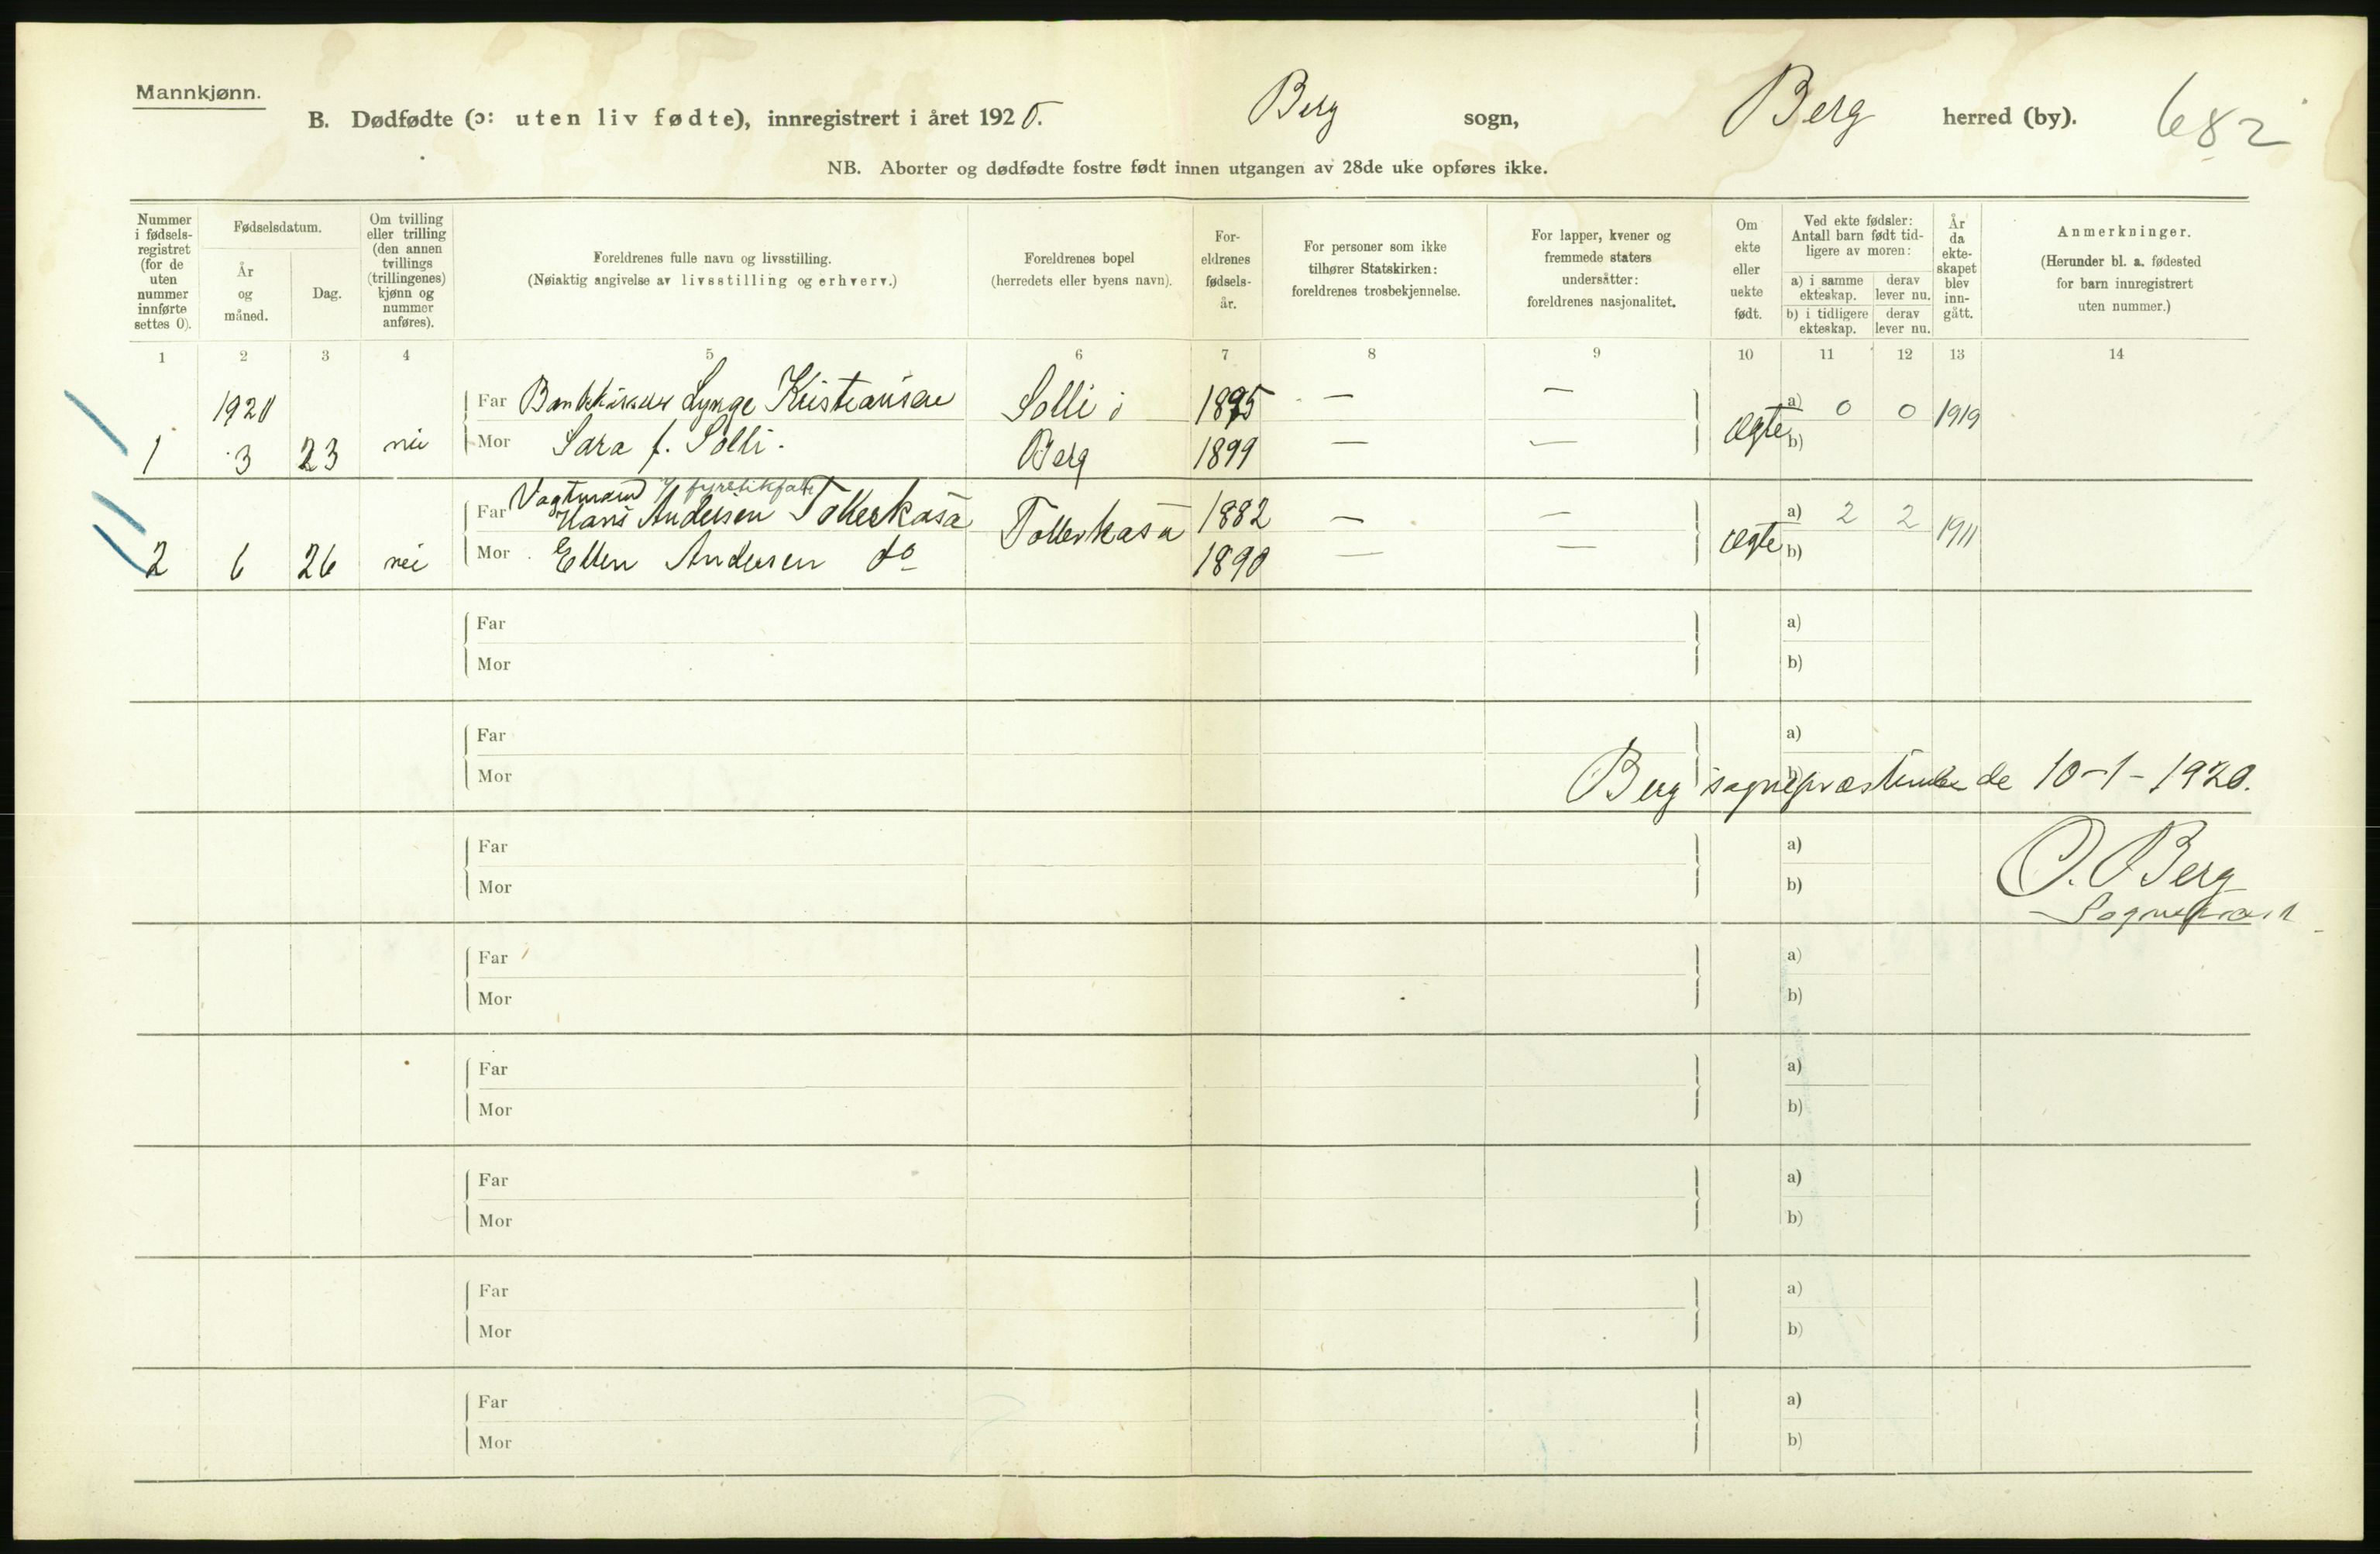 Mannkjønn.
B. Dødfødte (ɔ: uten liv fødte), innregistrert i året 1920. Berg sogn, Berg herred (by). 682
NB. Aborter og dødfødte fostre født innen utgangen av 28de uke opføres ikke.
Nummer i fødsels-registret (for de uten nummer innførte settes 0).
Fødselsdatum.
År og måned.
Dag.
Om tvilling eller trilling (den annen tvillings (trillingenes) kjønn og nummer anføres).
Foreldrenes fulle navn og livsstilling.
(Nøiaktig angivelse av livsstilling og erhverv.)
Foreldrenes bopel
(herredets eller byens navn).
For-eldrenes fødsels-år.
For personer som ikke tilhører Statskirken: foreldrenes trosbekjennelse.
For lapper, kvener og fremmede staters undersåtter: foreldrenes nasjonalitet.
Om ekte eller uekte født.
Ved ekte fødsler: Antall barn født tid-ligere av moren:
a) i samme ekteskap. derav lever nu.
b) i tidligere ekteskap. derav lever nu.
År da ekte-skapet blev inn-gått.
Anmerkninger.
(Herunder bl. a. fødested for barn innregistrert uten nummer.)
1 2 3 4 5 6 7 8 9 10 11 12 13 14
1920 Far Lynge Kristiansen Solli i 1895 — — a) 0 0 1919
1 3 23 nei Mor Sara f. Solli. Berg 1899 — — Ægte b)
Vagtmand v/ fyrstikfabr
Far Hans Andersen Tollerkasa Tollerkasa 1882 — — a) 2 2 1911
2 6 26 nei Mor Ellen Andersen do 1890 — — Ægte b)
Far a)
Mor b)
Far a)
Mor b)
Berg sogneprestembede 10-1-1920.
Far a)
Mor b)
O. Berg
Sogneprest
Far a)
Mor b)
Far a)
Mor b)
Far a)
Mor b)
Far a)
Mor b)
Far a)
Mor b)